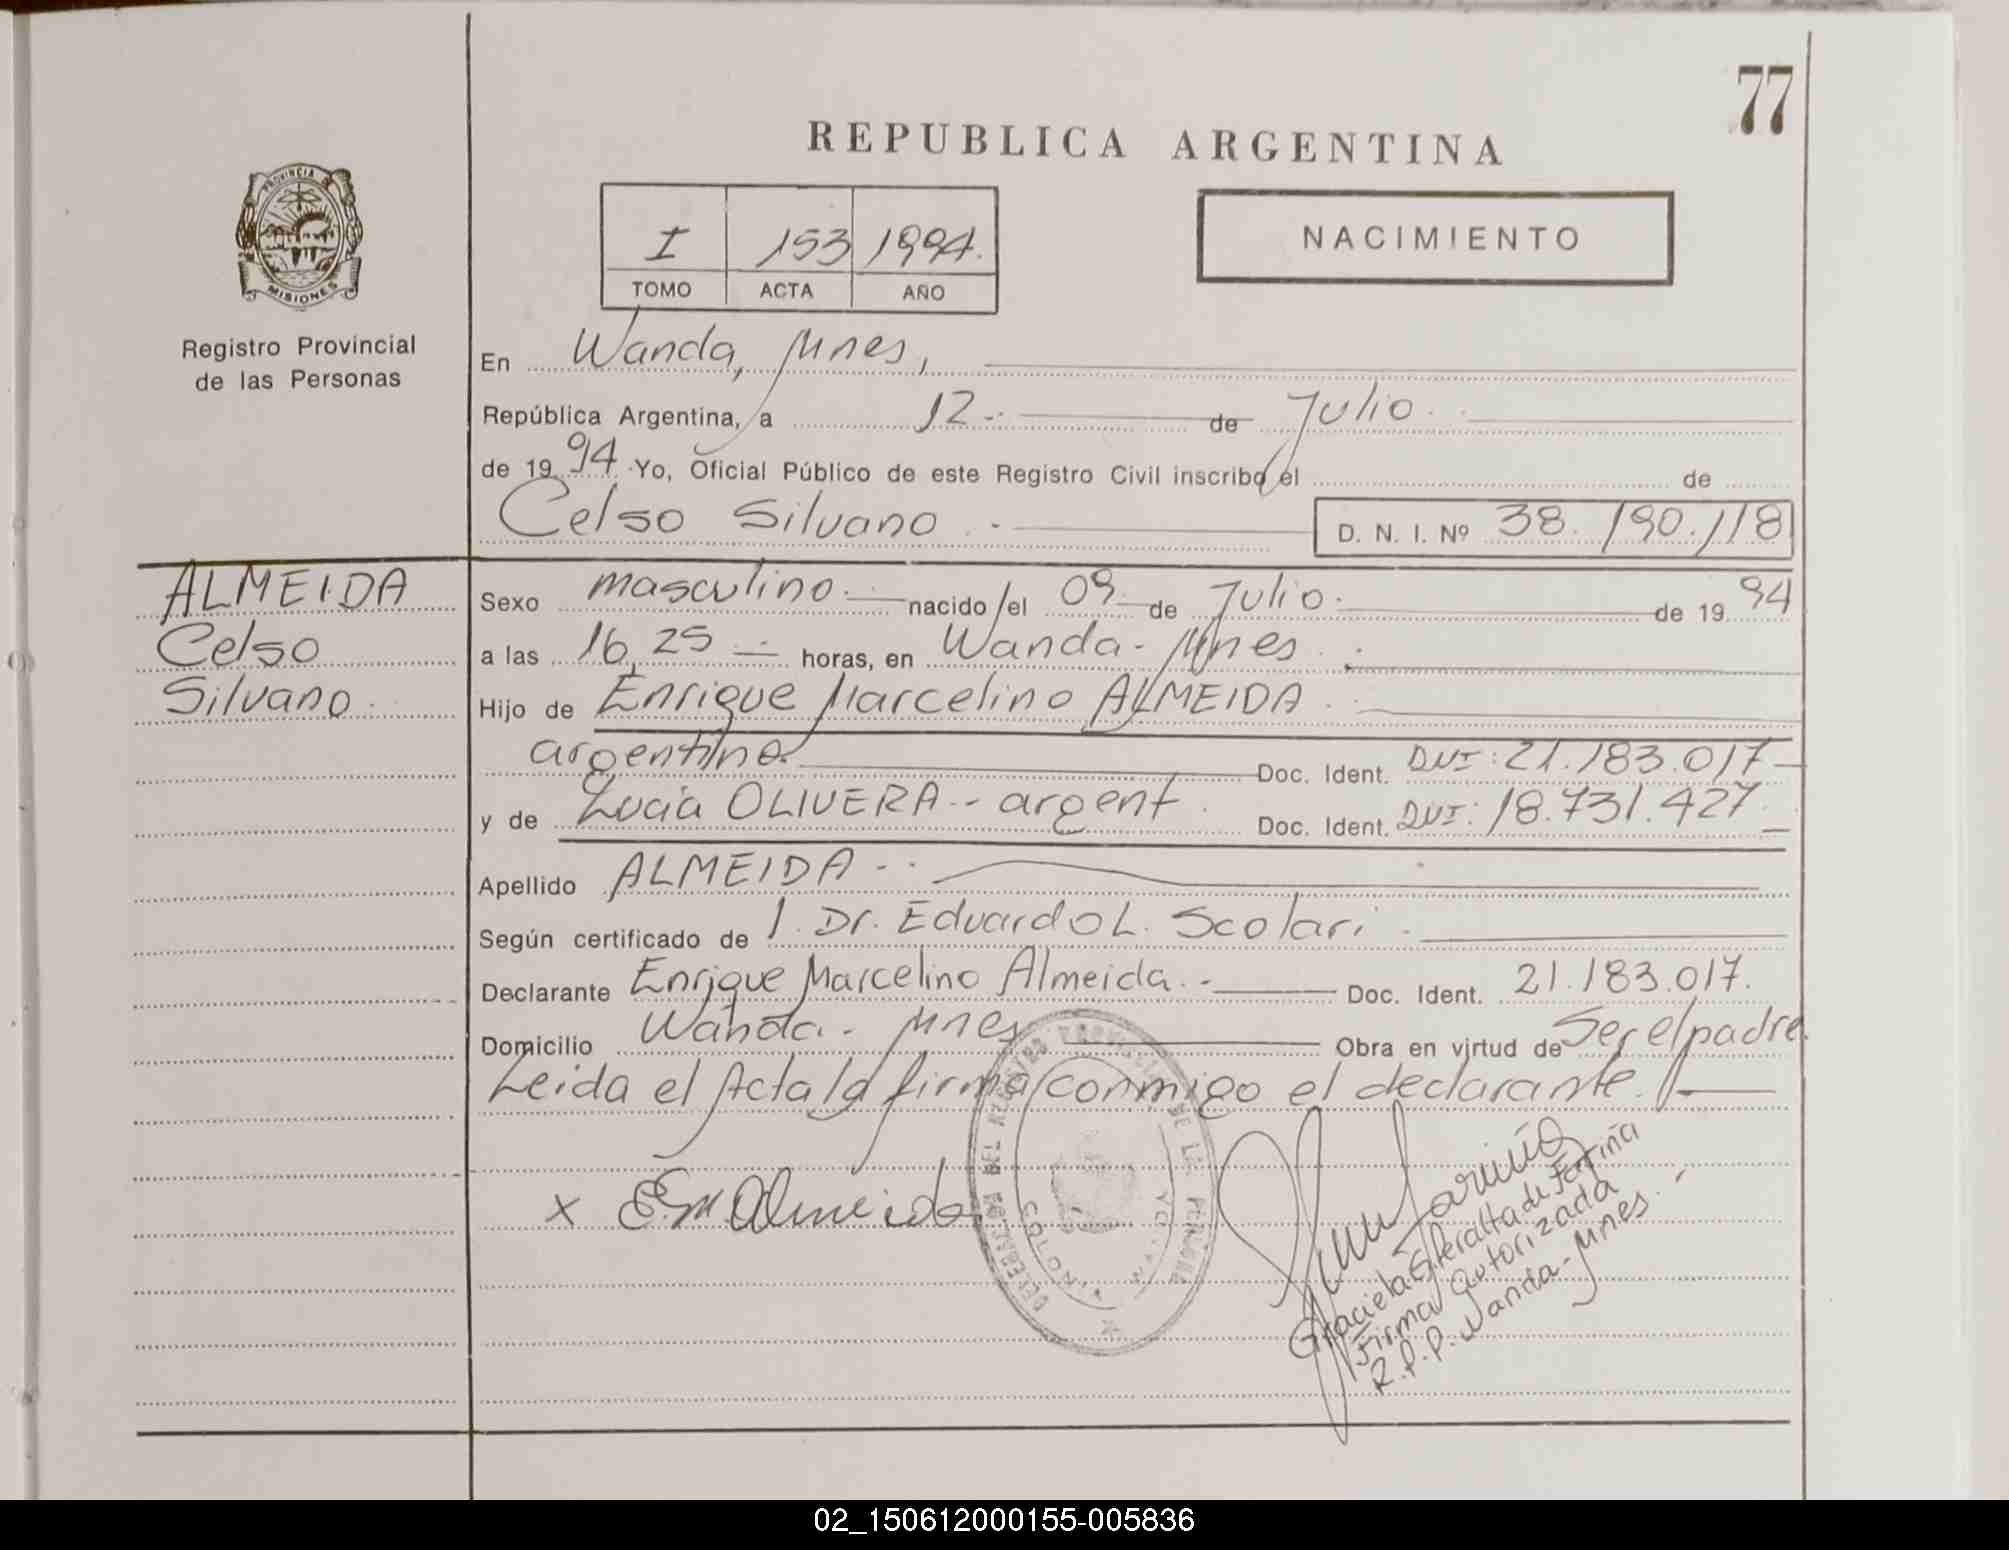 77
REPUBLICA ARGENTINA
PROVINCIA DE
MISIONES
Registro Provincial
de las Personas
I 153 1994.
TOMO ACTA AÑO
NACIMIENTO
En Wanda, Mnes,
República Argentina, a 12.- de Julio.
de 1994. Yo, Oficial Público de este Registro Civil inscribo el de
Celso Silvano.- D. N. I. Nº 38.190.118
ALMEIDA
Celso
Silvano.
Sexo masculino.- nacido el 09 de Julio. de 1994
a las 16,25 horas, en Wanda- Mnes.
Hijo de Enrique Marcelino ALMEIDA.
argentino. Doc. Ident. DNI: 21.183.017-
y de Lucia OLIVERA.- argent. Doc. Ident. DNI: 18.731.427.
Apellido ALMEIDA-.
Según certificado de 1. Dr. Eduardo L. Scolari.
Declarante Enrique Marcelino Almeida.- Doc. Ident. 21.183.017.
Domicilio Wanda- Mnes Obra en virtud de Ser el padre.
Leida el Acta la firma conmigo el declarante.
x E.M. Almeida
Graciela E. Peralta de Fariña
Firma autorizada
R.P.P. Wanda-Mnes.-
02_150612000155-005836